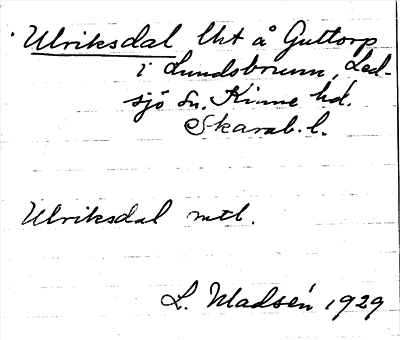 Ulriksdal lht å Guttorp
i Lundsbrunn, Led-
sjö sn. Kinne hd.
Skarab. l.
Ulriksdal mtl.
L. Madsén 1929